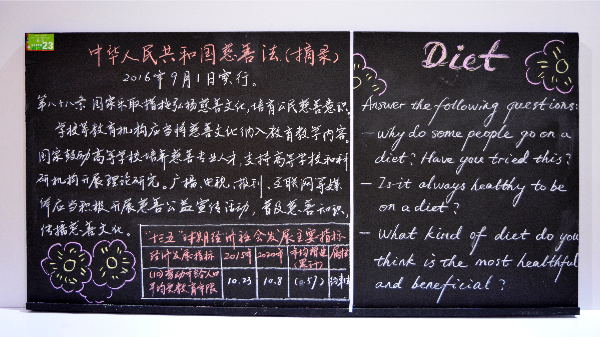 23
中华人民共和国慈善法（摘录）
2016年9月1日实行。
第八十八条 国家采取措施弘扬慈善文化，培育公民慈善意识。
学校等教育机构应当将慈善文化纳入教育教学内容。
国家鼓励高等学校培养慈善专业人才，支持高等学校和科
研机构开展理论研究。广播、电视、报刊、互联网等媒
体应当积极开展慈善公益宣传活动，普及慈善知识，
传播慈善文化。
"十三五"时期经济社会发展主要指标
经济发展指标 2015年 2020年 年均增速（累计） 属性
平均受教育年限 10.23 10.8 (0.57) 约束性
Diet
Answer the following questions:
— Why do some people go on a
diet? Have you tried this?
— Is it always healthy to be
on a diet?
— What kind of diet do you
think is the most healthful
and beneficial?